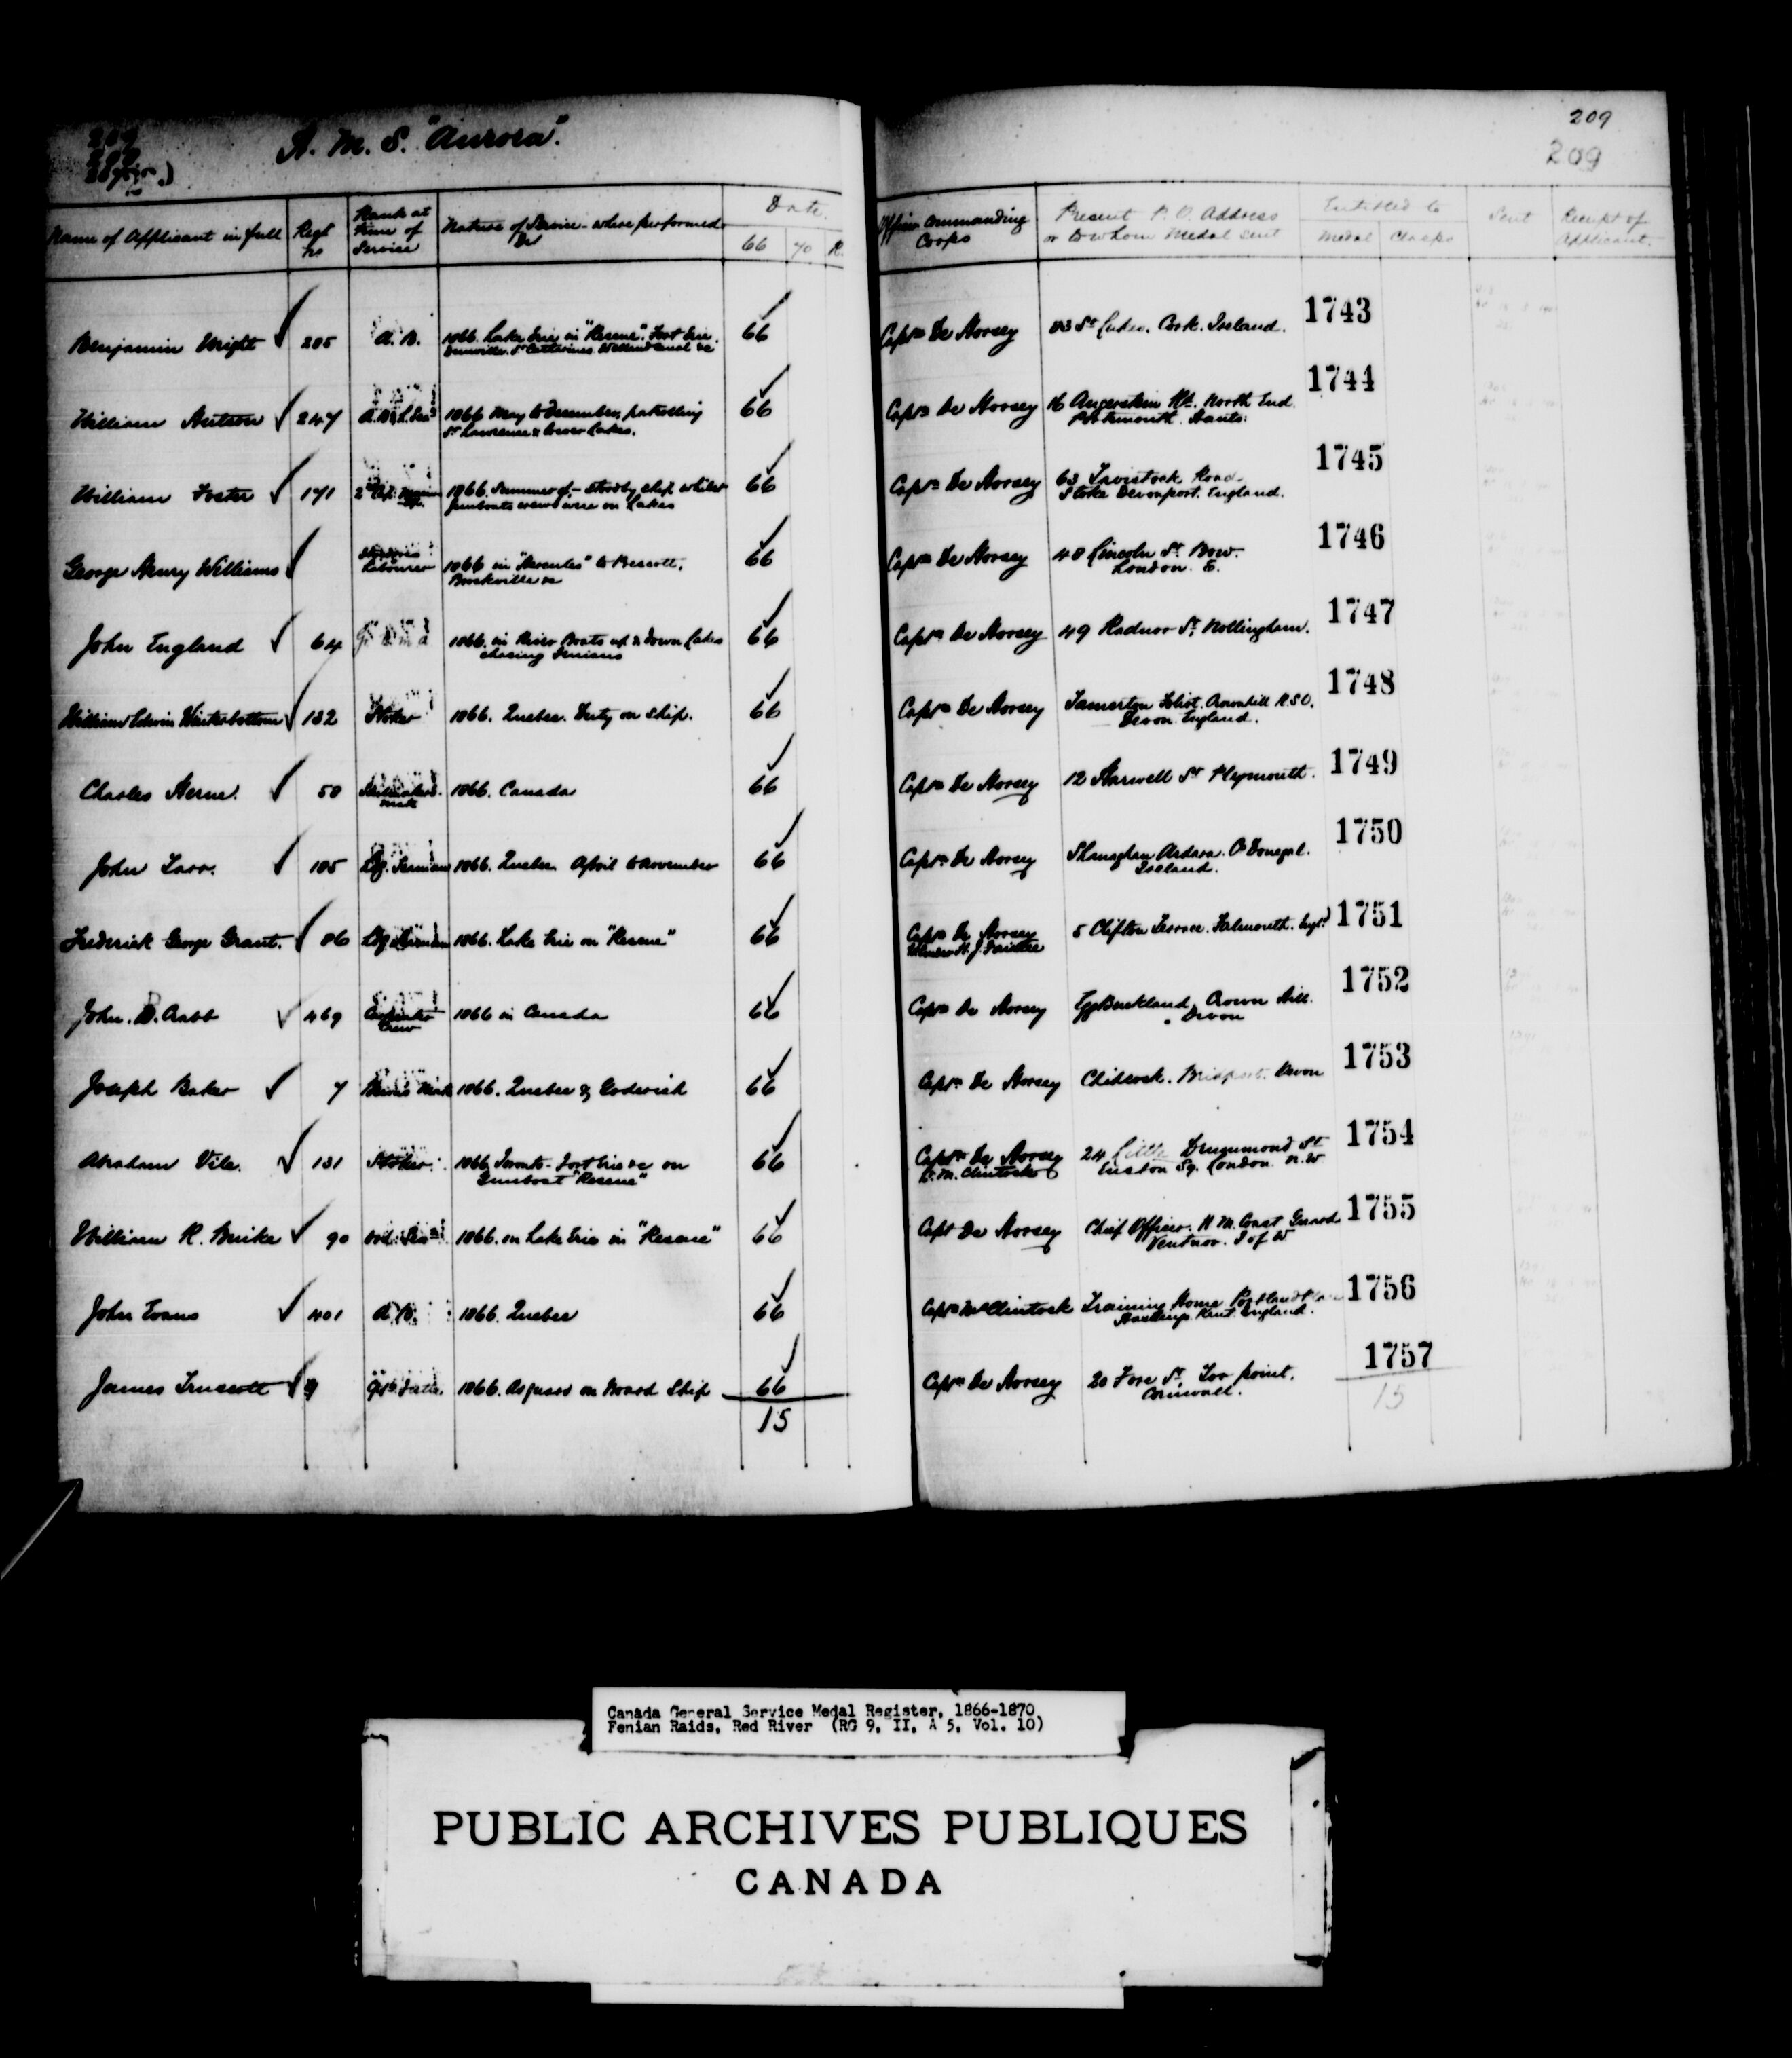 H. M. S. "Aurora".
209
209
Name of Applicant in full | Regl No | Rank at time of Service | Nature of Service - where performed &c | Date 66 70 R. | Officer Commanding Corps | Present P. O. Address or to whom Medal sent | Entitled to Medal Clasps | Sent | Receipt of Applicant.
Benjamin Wright | 285 | A. B. | 1866. Lake Erie in "Rescue". Fort Erie. | 66 | Captn De Horsey | 83 St Lukes. Cork. Ireland. | 1743
Dunville. St Catherines Welland Canal &c
William Hutson | 247 | 1866 May to December, patrolling | 66 | Captn De Horsey | 16 Angerstein Rd. North End. | 1744
St Lawrence & lower Lakes. | Portsmouth. Hants.
William Foster | 171 | 1866. Summer of - stood by ship whilst | 66 | Captn De Horsey | 63 Tavistock Road | 1745
Gunboats crews were on Lakes | Stoke Devonport. England.
George Henry Williams | Labourer | 1866 in "Hercules" to Prescott, | 66 | Captn De Horsey | 48 Lincoln St. Bow. | 1746
Brockville &c | London. E.
John England | 64 | 1866. in River Boats up & down Lakes | 66 | Captn De Horsey | 49 Radnor St, Nottingham. | 1747
chasing Fenians
William Edwin Winterbottom | 132 | Stoker | 1866. Quebec. Duty on ship. | 66 | Captn De Horsey | Tamerton Foliot. Crownhill R.S.O. | 1748
Devon. England.
Charles Herne. | 58 | Mate | 1866. Canada | 66 | Captn De Horsey | 12 Harwell St Plymouth. | 1749
John Tarr. | 105 | Ldg. Seaman | 1866. Quebec. April to November | 66 | Captn De Horsey | Shanaghan Ardara. Co Donegal. | 1750
Ireland.
Frederick George Grant. | 86 | Ldg. Seaman | 1866. Lake Erie on "Rescue" | 66 | Captn De Horsey | 5 Clifton Terrace. Falmouth. Engl. | 1751
H. J. Fairlie
John. B. Crabb | 469 | Carpenters | 1866 in Canada | 66 | Captn De Horsey | Egg Buckland, Crown Hill. | 1752
Crew | Devon
Joseph Baker | 7 | 1866. Quebec & Goderich | 66 | Captn De Horsey | Chideock. Bridport. Devon | 1753
Abraham Vile. | 131 | Stoker. | 1866. Toronto - Fort Erie &c on | 66 | Captn De Horsey | 24 Little Drummond St | 1754
Gunboat "Rescue" | Euston Sq. London. N.W
William R. Burke | 90 | Ord. Sea | 1866. on Lake Erie in "Rescue" | 66 | Capt De Horsey | Chief Officer. H M. Coast Guard | 1755
Ventnor. I of W
John Evans | 401 | A. B. | 1866. Quebec | 66 | Captn McClintock | Training Home Portland Place | 1756
Hastings Kent England.
James Truscott | 9 | 1866. As guard on Board Ship | 66 | Captn De Horsey | 20 Fore St, Tor point. | 1757
Cornwall.
15 | 15
Canada General Service Medal Register, 1866-1870.
Fenian Raids, Red River (RG 9, II, A 5, Vol. 10)
PUBLIC ARCHIVES PUBLIQUES
CANADA